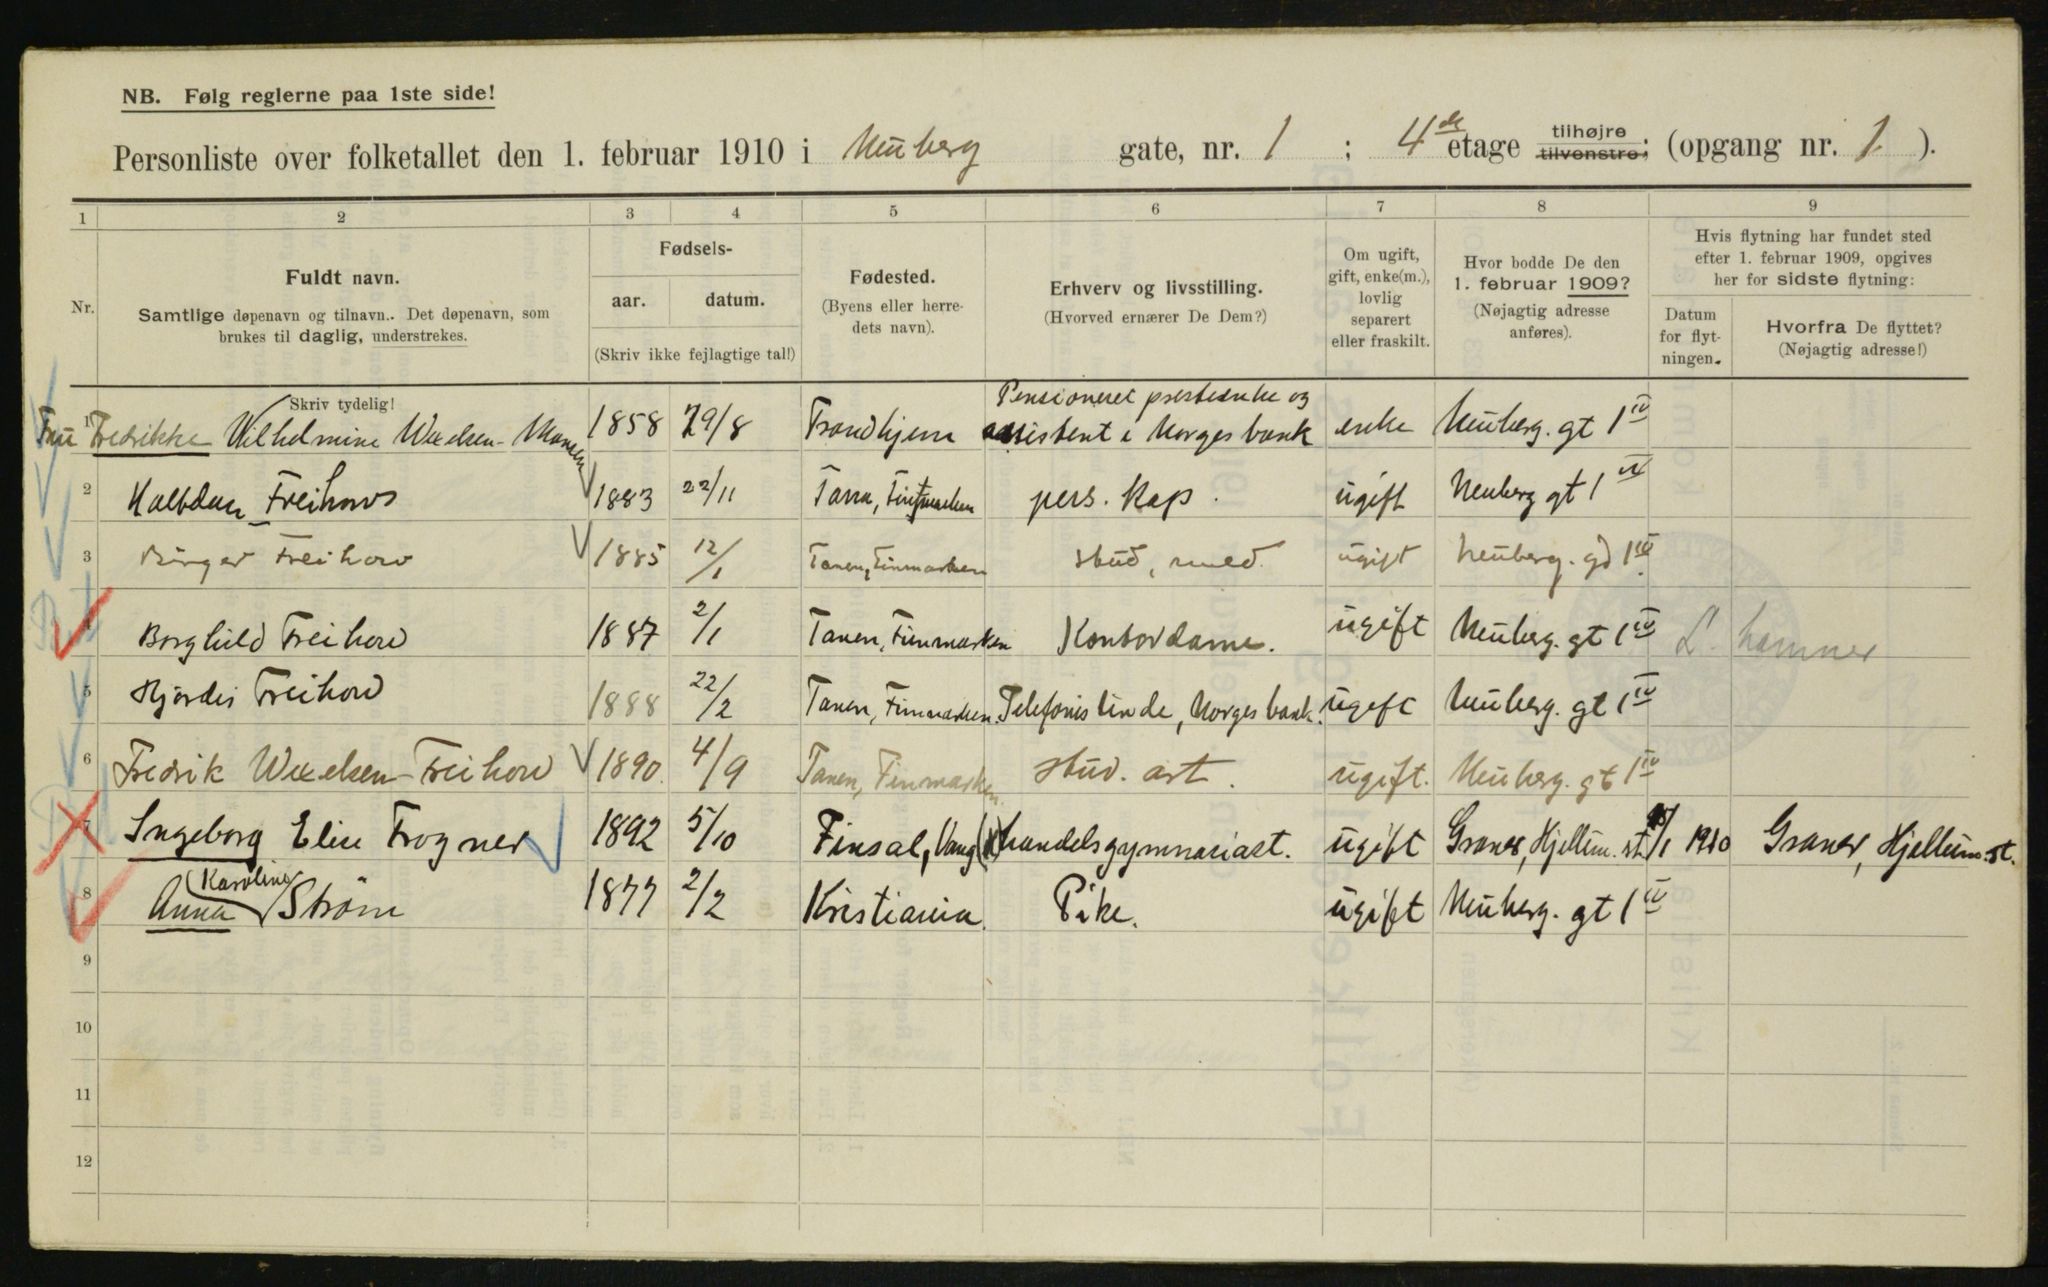 NB. Følg reglerne paa 1ste side!
Personliste over folketallet den 1. februar 1910 i Neuberg gate, nr. 1 ; 4de etage tilhøjre tilvenstre; (opgang nr. 1 ).
1 2 3 4 5 6 7 8 9
Nr.
Fuldt navn.
Samtlige døpenavn og tilnavn.. Det døpenavn, som
brukes til daglig, understrekes.
Fødsels-
aar. datum.
(Skriv ikke fejlagtige tal!)
Fødested.
(Byens eller herre-
dets navn).
Erhverv og livsstilling.
(Hvorved ernærer De Dem?)
Om ugift,
gift, enke(m.),
lovlig
separert
eller fraskilt.
Hvor bodde De den
1. februar 1909?
(Nøjagtig adresse
anføres).
Hvis flytning har fundet sted
efter 1. februar 1909, opgives
her for sidste flytning:
Datum
for flyt-
ningen.
Hvorfra De flyttet?
(Nøjagtig adresse!)
Skriv tydelig!
1 Fru Fredrikke Wilhelmine Wexelsen- 1858 29/8 Trondhjem Pensioneret presteenke og assistent i Norges bank enke Neuberg. gt 1 IV
2 Halvdan Freihow 1883 22/11 Tana, Finmarken pers. kap. ugift Neuberg gt 1 IV
3 Birger Freihow 1885 12/1 Tanen, Finmarken stud, med. ugift Neuberg. gt 1 IV
4 Borghild Freihow 1887 2/1 Tanen, Finmarken Kontordame. ugift Neuberg. gt 1 IV L. hammer
5 Hjördis Freihow 1888 22/2 Tanen, Finmarken. Telefonistinde, Norges bank. ugift Neuberg. gt 1 IV
6 Fredrik Wexelsen-Freihow 1890. 4/9 Tanen, Finmarken. stud. art. ugift. Neuberg. gt 1 IV
7 Ingeborg Elise Frogner 1892 5/10 Finsal, Vang handelsgymnasiast. ugift Graner, Hjellum. st. /1 1910 Graner, Hjellum. st.
8 Anna (Karoline) Ström 1877 2/2 Kristiania. Pike. ugift Neuberg. gt 1 IV
9
10
11
12